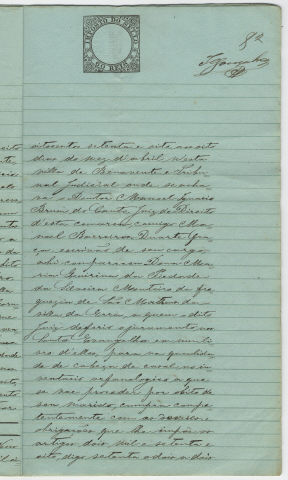 IMPOSTO DO SELLO
60 REIS
82
oitocentos setenta e sete aos oito
dias do mez d'Abril n'esta
villa de Benavente e Tribu
nal Judicial onde se acha
va o Doutor Manoel Ignacio
Brum do Canto Juiz de Direito
d'esta comarca, comigo Ma
noel Duarte
escrivão de seu cargo
ahi compareceu Dona Ma
ria Quirina da Piedade
da Silveira Monteiro da fre
guezia de São Matheus da
villa da Erra, a quem o dito
Juiz deferio o juramento nos
Santos Evangelhos em um li
vro d'elles, para na qualida
de de cabeça de casal, no in
ventario orfanologico a que
se vae proceder por obito de
seu marido, cumprir compe
tentemente com os deveres e
obrigações que lhe impõe os
artigos dois mil e setenta e
oito, digo setenta e dois a dois